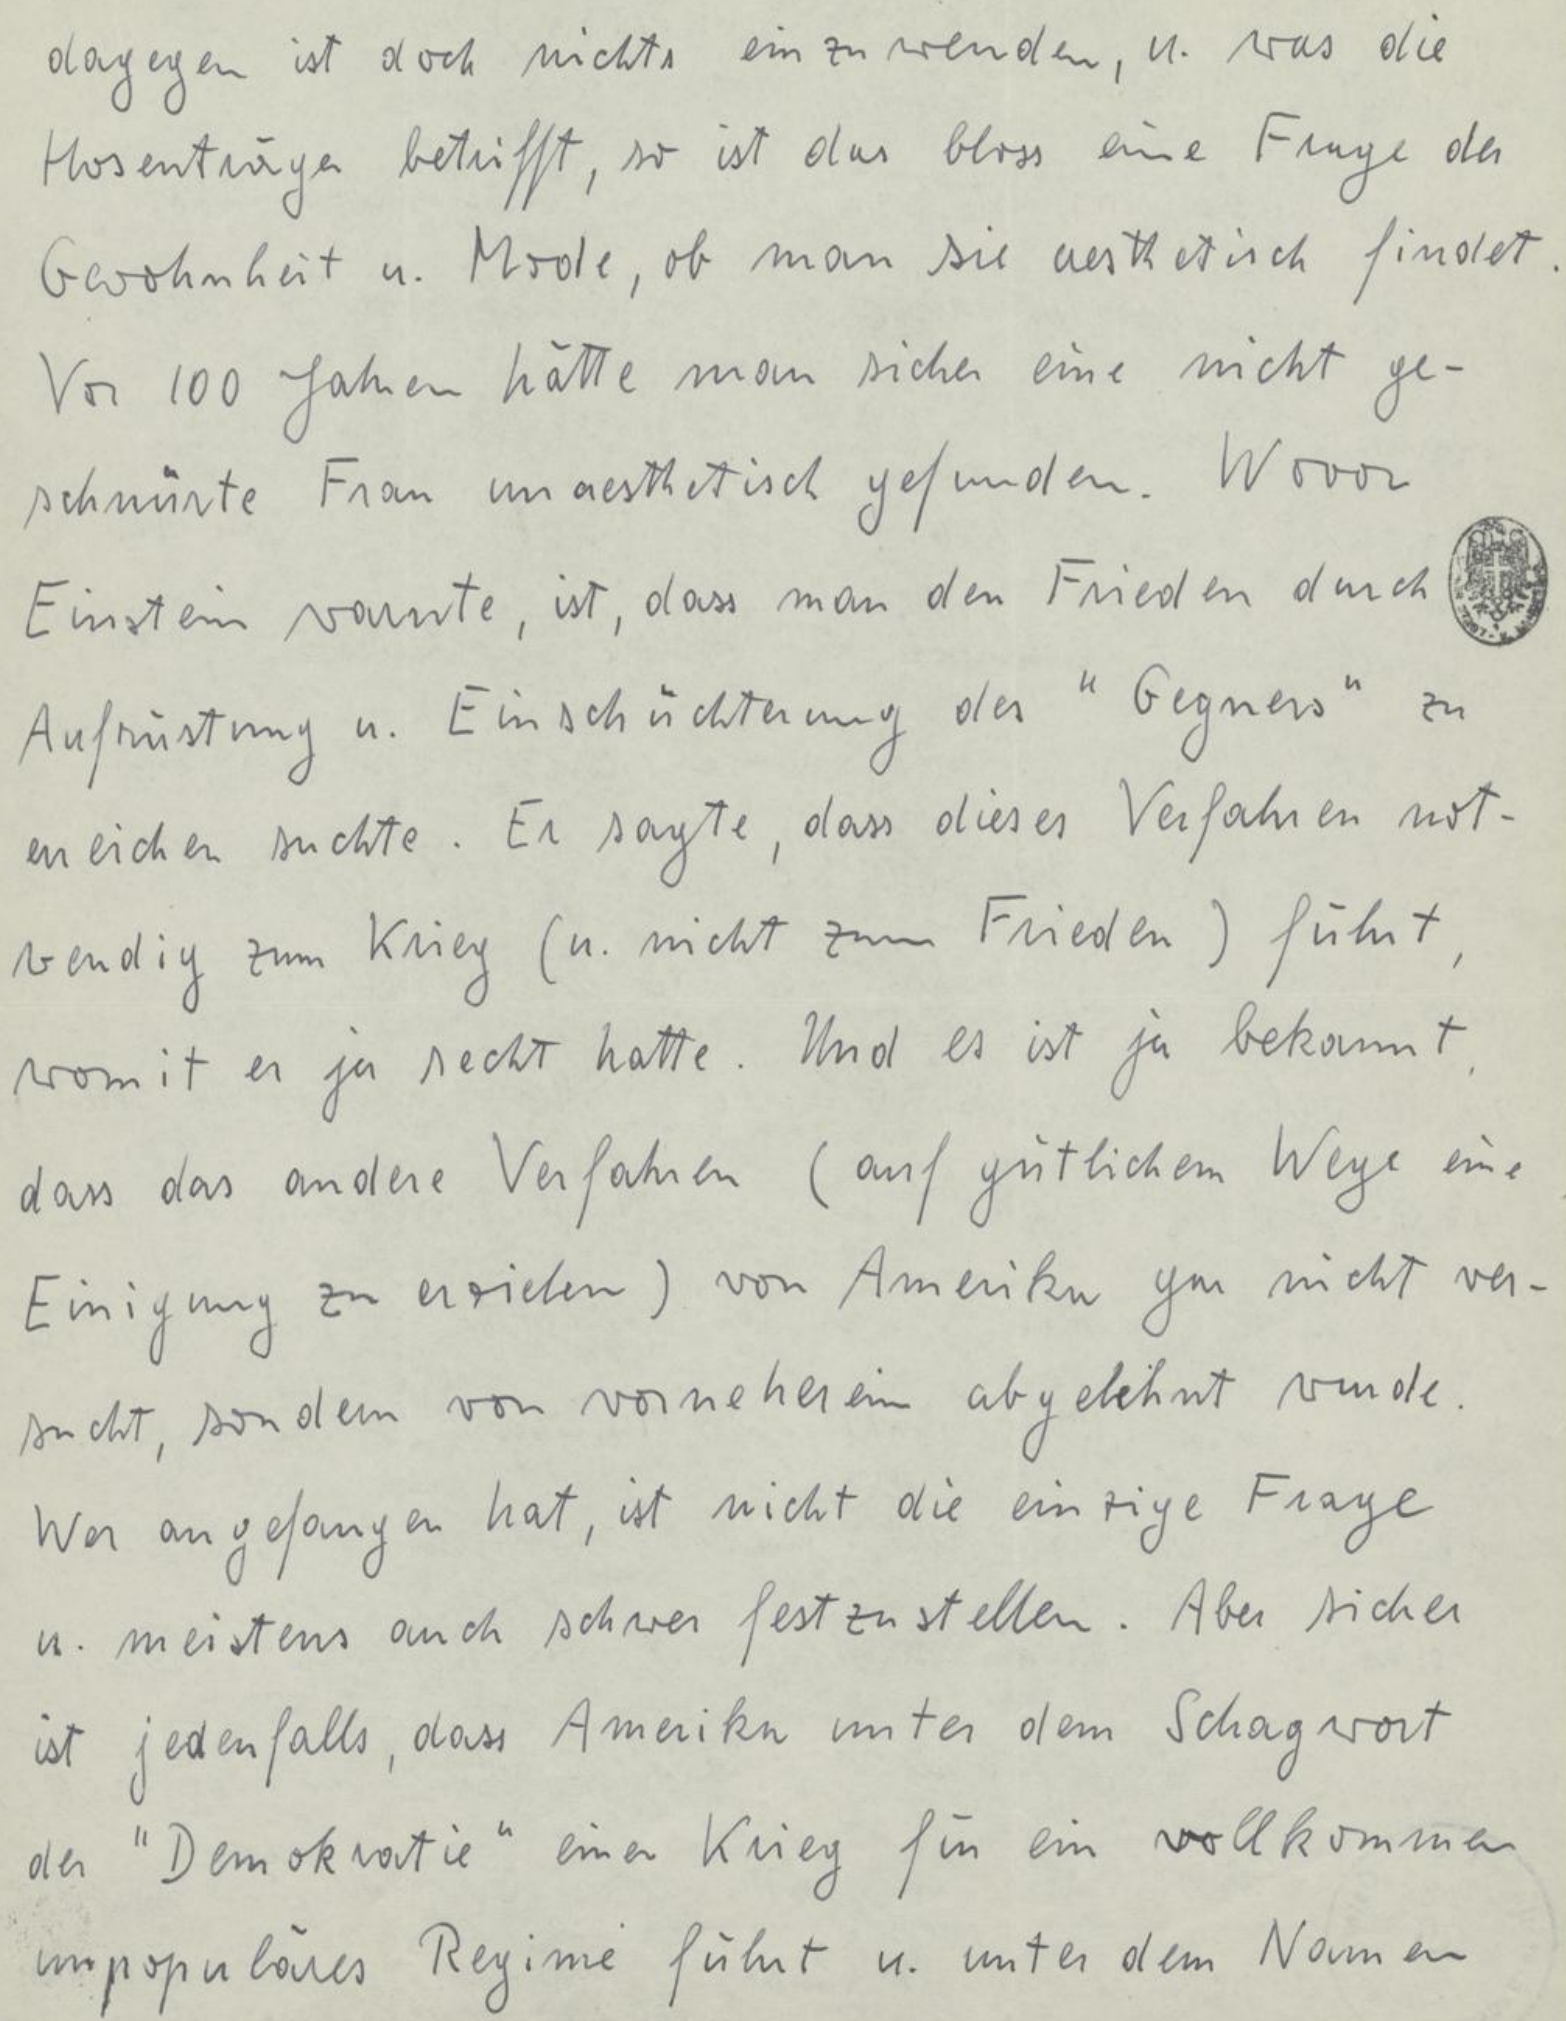 dagegen ist doch nichts einzuwenden, u. was die
Hosenträger betrifft, so ist das bloss eine Frage der
Gewohnheit u. Mode, ob man sie aesthetisch findet.
Vor 100 Jahren hätte man sicher eine nicht ge-
schnürte Frau unaesthetisch gefunden. Wovor
Einstein warnte, ist, dass man den Frieden durch
Aufrüstung u. Einschüchterung des "Gegners" zu
erreichen suchte. Er sagte, dass dieses Verfahren not-
wendig zum Krieg (u. nicht zum Frieden) führt,
womit er ja recht hatte. Und es ist ja bekannt,
dass das andere Verfahren (auf gütlichem Wege eine
Einigung zu erzielen) von Amerika gar nicht ver-
sucht, sondern von vorneherein abgelehnt wurde.
Wer angefangen hat, ist nicht die einzige Frage
u. meistens auch schwer festzustellen. Aber sicher
ist jedenfalls, dass Amerika unter dem Schagwort
der "Demokratie" einen Krieg für ein vollkommen
unpopuläres Regime führt u. unter dem Namen